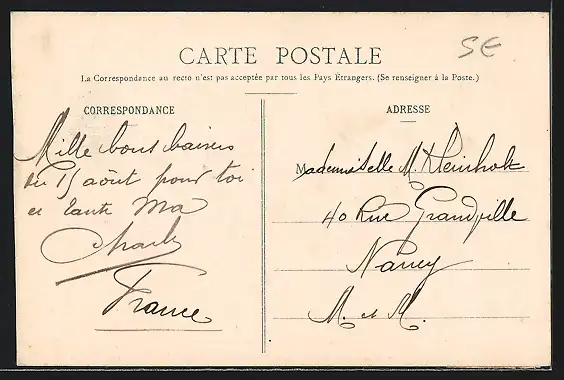 CARTE POSTALE
SE
La Correspondance au recto n'est pas acceptée par tous les Pays Étrangers. (Se renseigner à la Poste.)
CORRESPONDANCE
Mille bons baisers
du 15 août pour toi
et tante Ma
Charles
France
ADRESSE
Mademoiselle M. Kleinholz
40 Rue Grandville
Nancy
M. et M.